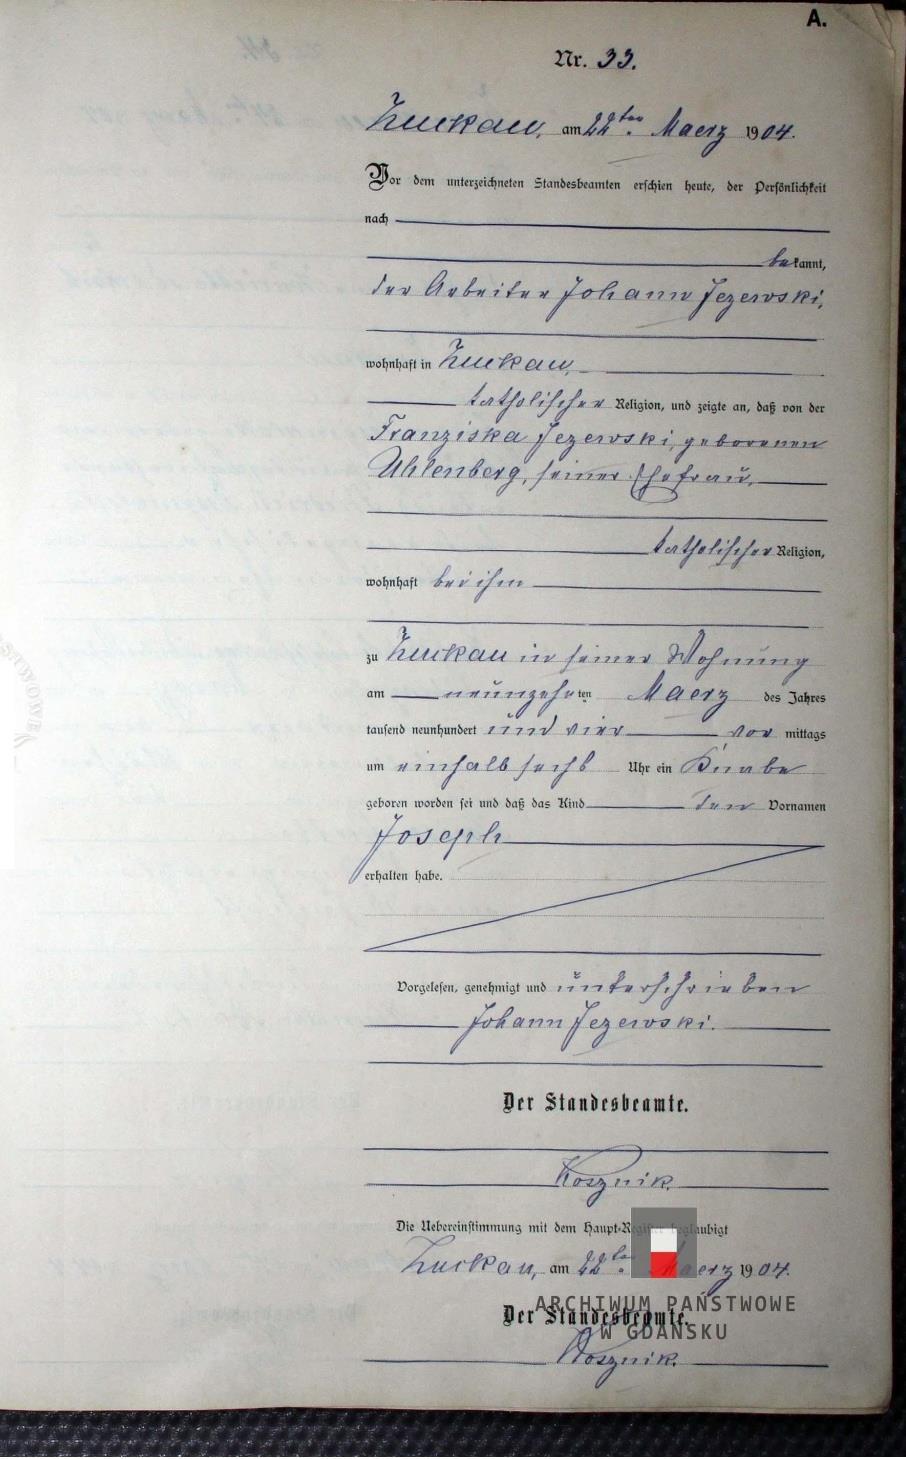 A.
Nr. 33.
Zuckau, am 22ten Maerz 1904.
Vor dem unterzeichneten Standesbeamten erschien heute, der Persönlichkeit
nach
bekannt,
der Arbeiter Johann Jezewski,
wohnhaft in Zuckau,
katholischer Religion, und zeigte an, daß von der
Franziska Jezewski, geborenen
Uhlenberg, seiner Ehefrau,
katholischer Religion,
wohnhaft bei ihm
zu Zuckau in seiner Wohnung
am neunzehnten Maerz des Jahres
tausend neunhundert und vier vor mittags
um einhalb sechs Uhr ein Knabe
geboren worden sei und daß das Kind den Vornamen
Joseph
erhalten habe.
Vorgelesen, genehmigt und unterschrieben
Johann Jezewski.
Der Standesbeamte.
Kosznik.
Die Uebereinstimmung mit dem Haupt-Register beglaubigt
Zuckau, am 22ten Maerz 1904.
ARCHIWUM PAŃSTWOWE
Der Standesbeamte.
W GDAŃSKU
Kosznik.